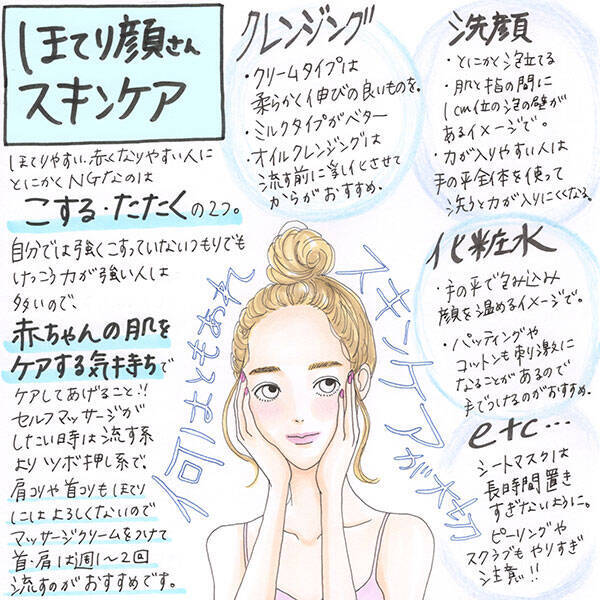 ほてり顔さん
スキンケア
ほてりやすい、赤くなりやすい人に
とにかくNGなのは
こする・たたくの2つ。
自分では強くこすっていないつもりでも
けっこう力が強い人は
多いので、
赤ちゃんの肌を
ケアする気持ちで
ケアしてあげること!!
セルフマッサージが
したい時は流す系
よりツボ押し系で。
肩コリや首コリもほてり
にはよろしくないので
マッサージクリームをつけて
首・肩は週1〜2回
流すのがおすすめです。
クレンジング
・クリームタイプは
柔らかく伸びの良いものを。
・ミルクタイプがベター
・オイルクレンジングは
流す前に乳化させて
からがおすすめ。
洗顔
・とにかく泡立てる
・肌と指の間に
1cm位の泡の壁が
あるイメージで。
・力が入りやすい人は
手の平全体を使って
洗うと力が入りにくくなる。
化粧水
・手の平で包み込み
顔を温めるイメージで。
・パッティングや
コットンも刺激に
なることがあるので
手でつけるのがおすすめ。
etc…
シートマスクは
長時間置き
すぎないように。
ピーリングや
スクラブもやりすぎ
注意!!
何はともあれ
スキンケアが大切